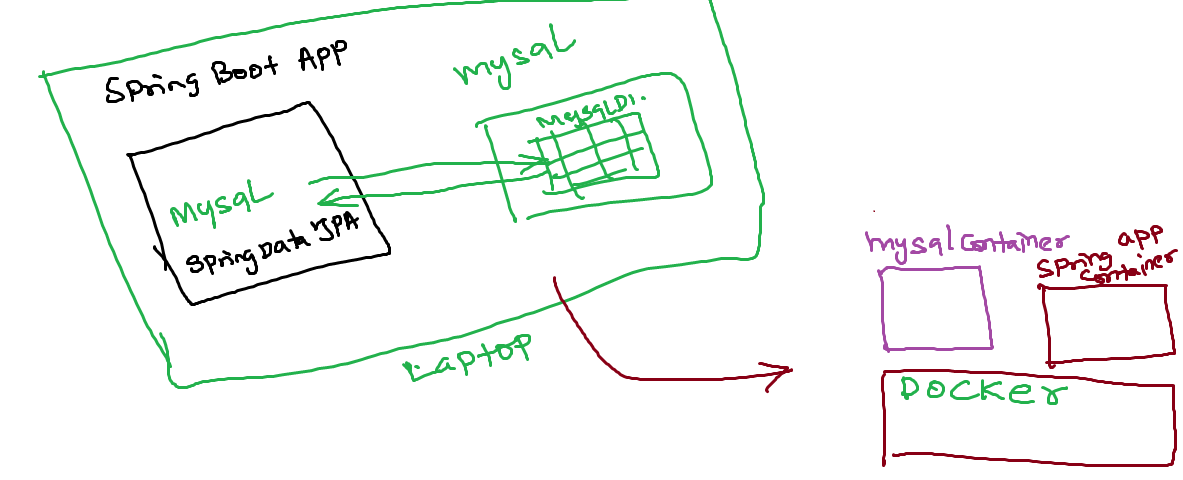 Spring Boot App
mysql
MysqlDB.
Mysql
Spring Data JPA
Laptop
mysql container
Spring app
container
Docker